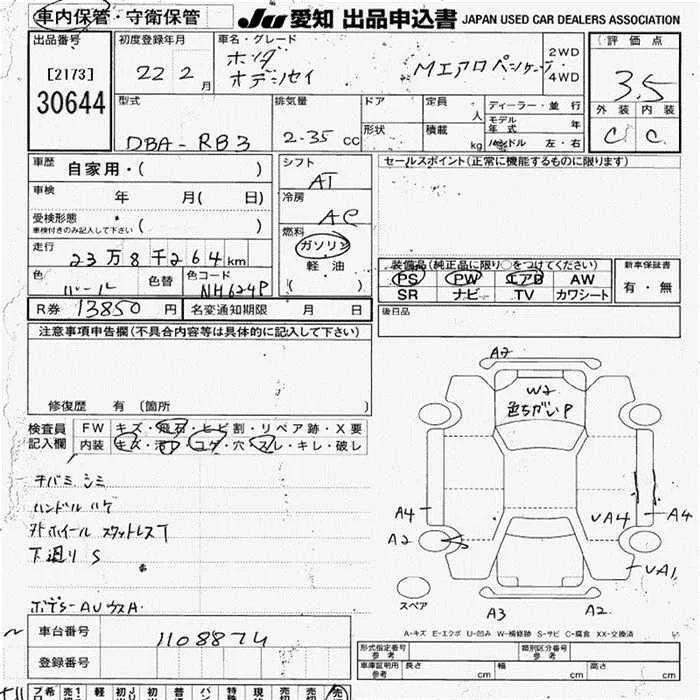 車内保管・守衛保管
JU 愛知 出品申込書 JAPAN USED CAR DEALERS ASSOCIATION
出品番号
[2173]
30644
初度登録年月
22 2月
車名・グレード
ホンダ
オデッセイ
Mエアロパッケージ
2WD
4WD
評価点
3.5
外装 内装
C C
型式
DBA-RB3
排気量
2.35 CC
ドア
形状
定員 人
積載 kg
ディーラー・並行
モデル年式 年
ハンドル 左・右
車歴
自家用・( )
車検
年 月( 日)
受検形態
車検付きのみ記入して下さい ( )
走行
23万8千264km
色
パール
色替
色コード
NH624P
シフト
AT
冷房
AC
燃料
ガソリン
軽油
( )
セールスポイント(正常に機能するものに限ります)
装備品(純正品に限り○をつけてください)
PS PW エアB AW
SR ナビ TV カワシート
新車保証書
有・無
R券 13850円
名変通知期限 月 日
後日品
注意事項申告欄(不具合内容等は具体的に記入して下さい)
修復歴 有 〔箇所
検査員
記入欄
FW キズ・飛石・ヒビ割・リペア跡・X要
内装 キズ・汚れ・コゲ・穴・スレ・キレ・破レ
チバミ シミ
ハンドル ハゲ
外ホイール スタットレスT
下廻り S
A2
W2
色ちがいP
A4
A2
VA4
A4
VA1
スペア
A3
A2
A-キズ E-エクボ U-凹み W-補修跡 S-サビ C-腐食 XX-交換済
車台番号
1108874
登録番号
形式指定番号
参考
類別区分番号
参考
車庫証明用
参考
長さ cm
幅 cm
高さ cm